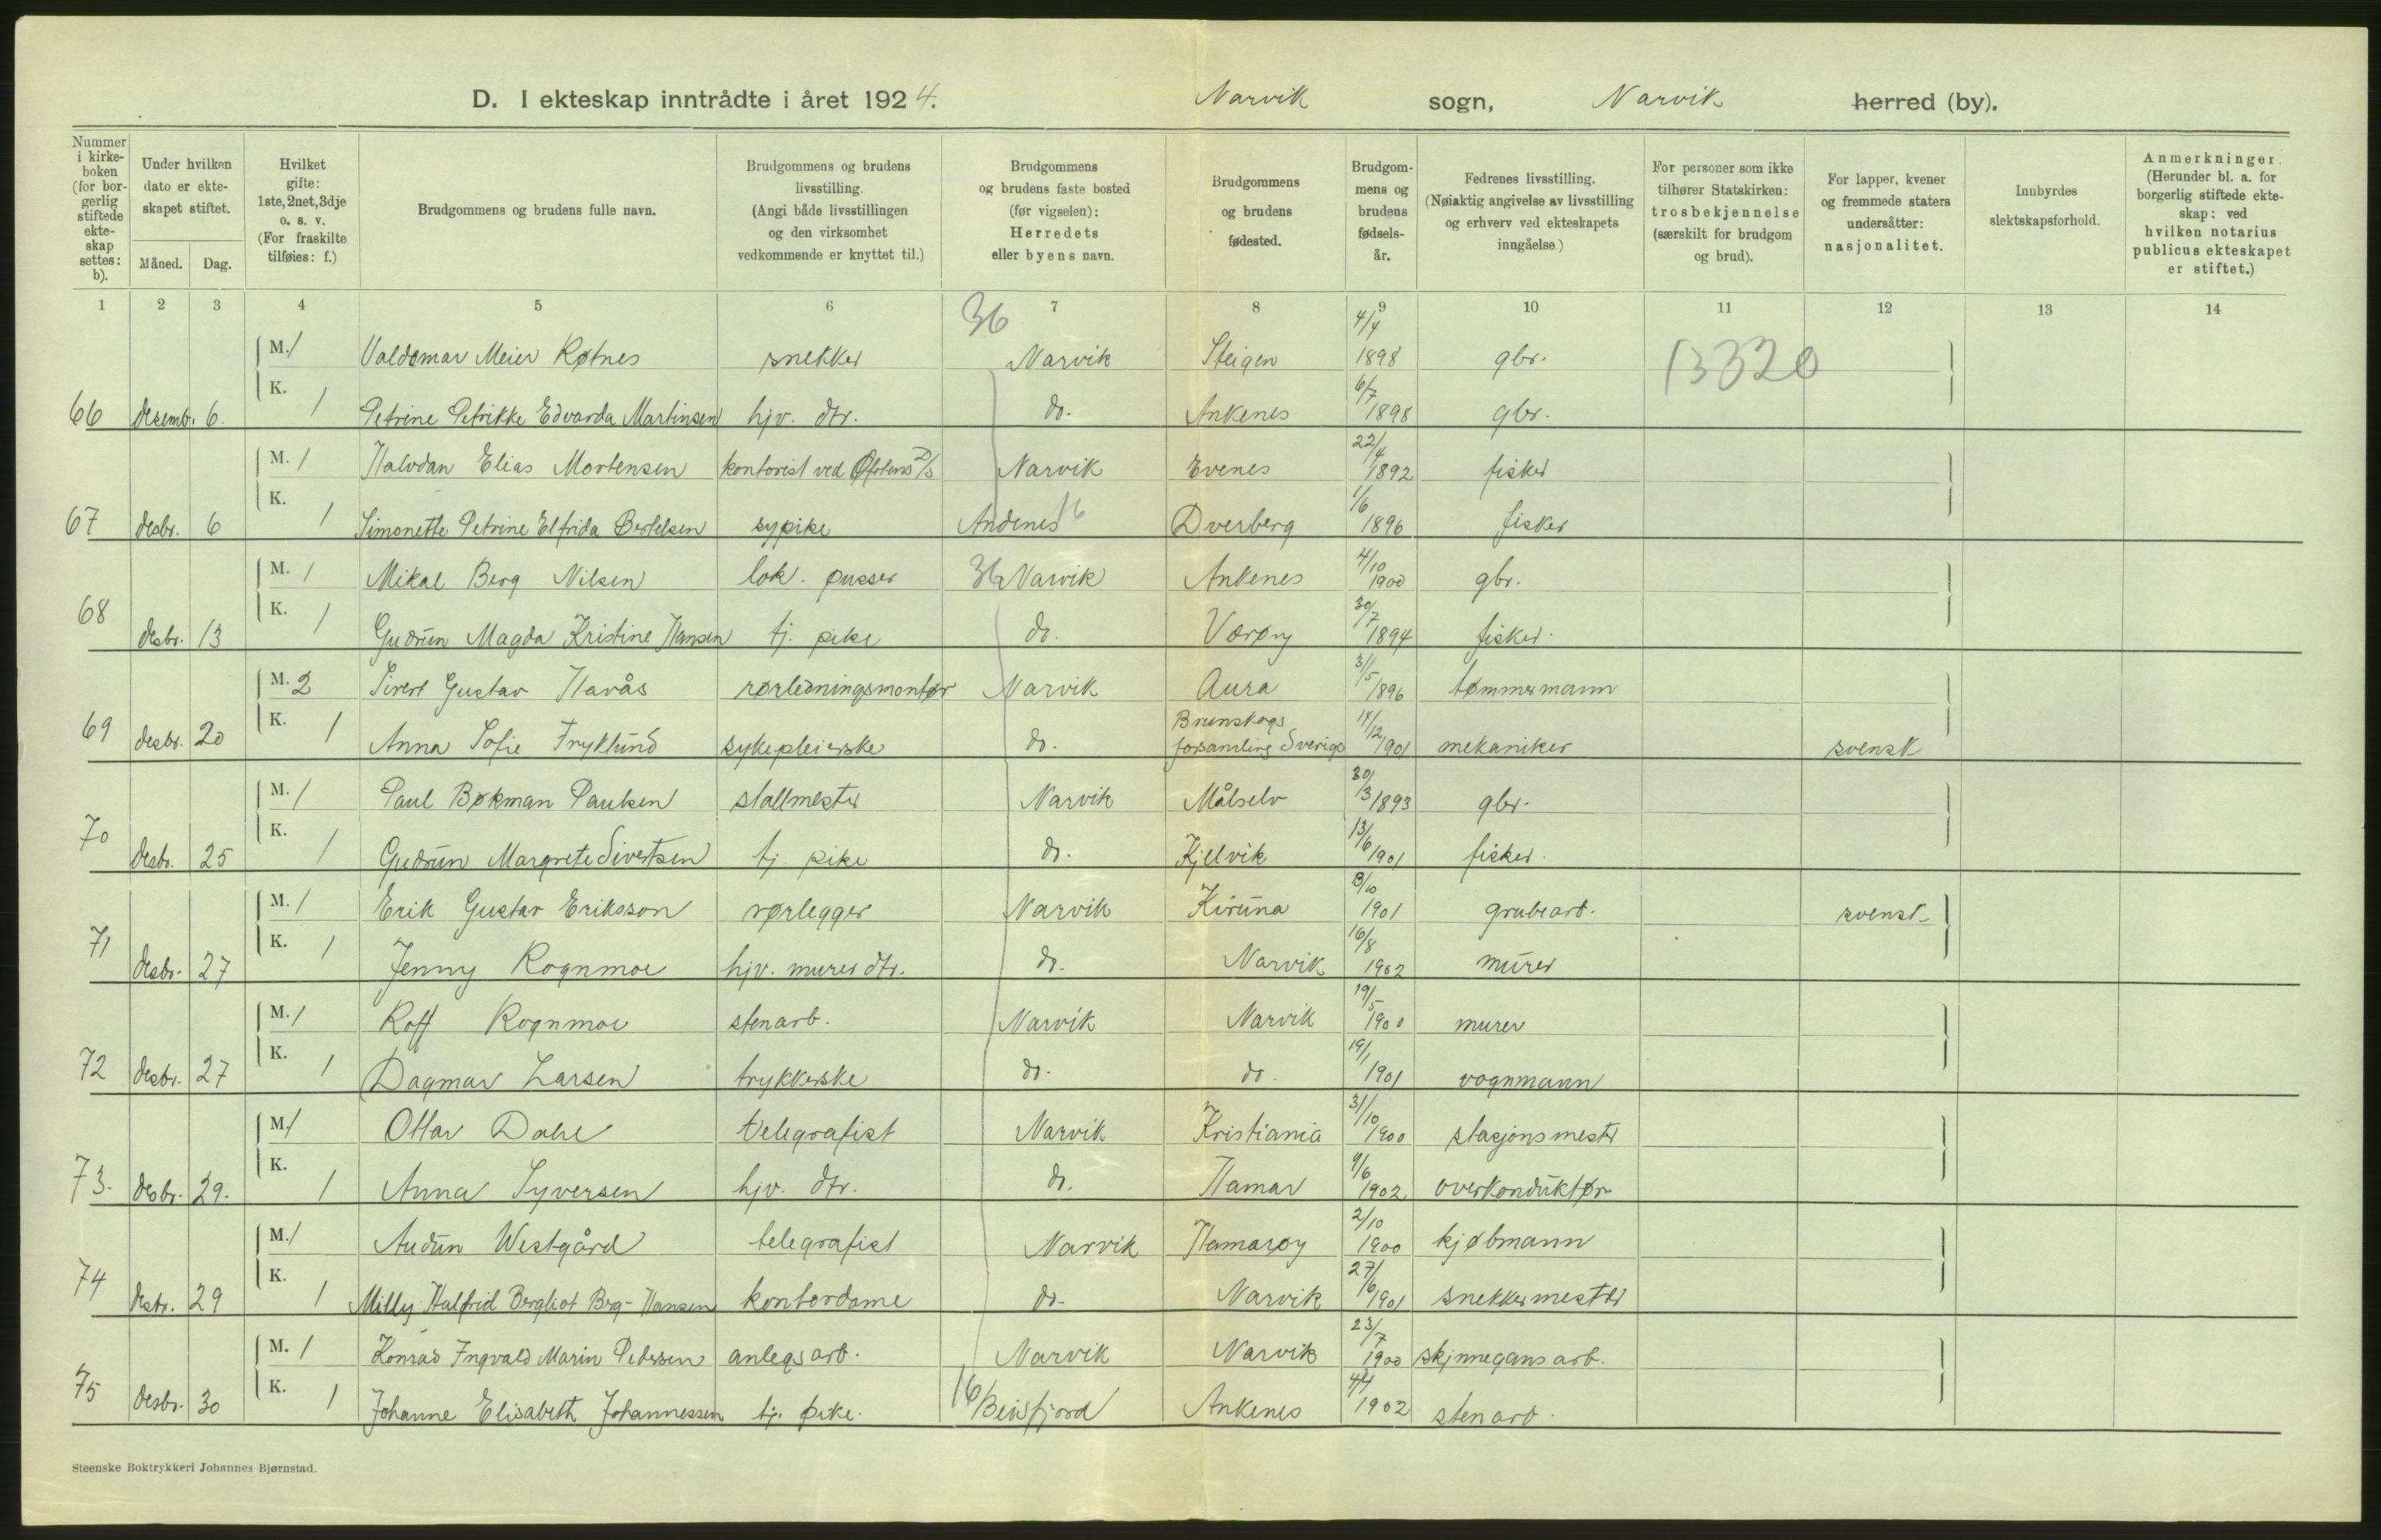 D. I ekteskap inntrådte i året 1924. Narvik sogn, Narvik herred (by).
Nummer i kirke-boken (for bor-gerlig stiftede ekte-skap settes: b).
Under hvilken dato er ekte-skapet stiftet.
Måned. Dag.
Hvilket gifte: 1ste, 2net, 3dje o. s. v. (For fraskilte tilføies: f.)
Brudgommens og brudens fulle navn.
Brudgommens og brudens livsstilling. (Angi både livsstillingen og den virksomhet vedkommende er knyttet til.)
Brudgommens og brudens faste bosted (før vigselen): Herredets eller byens navn.
Brudgommens og brudens fødested.
Brudgom-mens og brudens fødsels-år.
Fedrenes livsstilling. (Nøiaktig angivelse av livsstilling og erhverv ved ekteskapets inngåelse.)
For personer som ikke tilhører Statskirken: trosbekjennelse (særskilt for brudgom og brud).
For lapper, kvener og fremmede staters undersåtter: nasjonalitet.
Innbyrdes slektskapsforhold.
Anmerkninger. (Herunder bl. a. for borgerlig stiftede ekte-skap: ved hvilken notarius publicus ekteskapet er stiftet.)
1 2 3 4 5 6 7 8 9 10 11 12 13 14
36
M. 1 Valdemar Meier Røtnes snekker Narvik Steigen 4/4 1898 gbr. 13320
66 desemb. 6. K. 1 Petrine Petrikke Edvarda Martinsen hjv. dtr. do. Ankenes 6/7 1898 gbr.
M. 1 Halvdan Elias Mortensen kontorist ved Ofotens D/S Narvik Evenes 22/4 1892 fisker
67 desbr. 6 K. 1 Simonette Petrine Elfrida Bertelsen sypike Andenes 16 Dverberg 1/6 1896 fisker
M. 1 Mikal Berg Nilsen lok. pusser 36 Narvik Ankenes 4/10 1900 gbr.
68 desbr. 13 K. 1 Gudrun Magda Kristine Hansen tj. pike do. Værøy 30/7 1894 fisker.
M. 2 Sivert Gustav Havås rørledningsmontør Narvik Aura 31/5 1896 tømmermann
69 desbr. 20 K. 1 Anna Sofie Fryklund sykepleierske do. Brunskogs forsamling Sverige 14/12 1901 mekaniker svensk
M. 1 Paul Bøkman Paulsen stallmester Narvik Målselv 30/3 1893 gbr.
70 desbr. 25 K. 1 Gudrun Margrete Sivertsen tj. pike do. Kjelvik 13/6 1901 fisker.
M. 1 Erik Gustav Eriksson rørlegger Narvik Kiruna 8/10 1901 grubearb. svensk
71 desbr. 27 K. 1 Jenny Rognmoe hjv. murer dtr. do. Narvik 16/8 1902 murer
M. 1 Rolf Rognmoe stenarb. Narvik Narvik 19/5 1900 murer
72 desbr. 27 K. 1 Dagmar Larsen trykkerske do. do. 19/1 1901 vognmann
M. 1 Ottar Dahl telegrafist Narvik Kristiania 31/10 1900 stasjonsmester
73. desbr. 29. K. 1 Anna Syversen hjv. dtr. do. Hamar 9/6 1902 overkonduktør
M. 1 Audun Westgård telegrafist Narvik Hamarøy 2/10 1900 kjøbmann
74 desbr. 29 K. 1 Milly Halfrid Bergliot Berg-Hansen kontordame do. Narvik 27/6 1901 snekkermester
M. 1 Konrad Ingvald Marin Pedersen anlegsarb. Narvik Narvik 23/7 1900 skjnnegans arb.
75 desbr. 30 K. 1 Johanne Elisabeth Johannessen tj. pike. 16 Beisfjord Ankenes 4/4 1902 stenarb.
Steenske Boktrykkeri Johannes Bjørnstad.